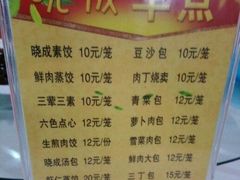 晓成素饺 10元/笼 豆沙包 10元/笼
鲜肉蒸饺 10元/笼 肉丁烧卖 10元/笼
三荤三素 10元/笼 青菜包 12元/笼
六色点心 10元/笼 萝卜肉包 12元/笼
生煎肉饺 12元/份 雪菜肉包 12元/笼
晓成汤包 12元/笼 鲜肉大包 12元/笼
虾仁蒸饺 20元/笼 三丁包 15元/笼